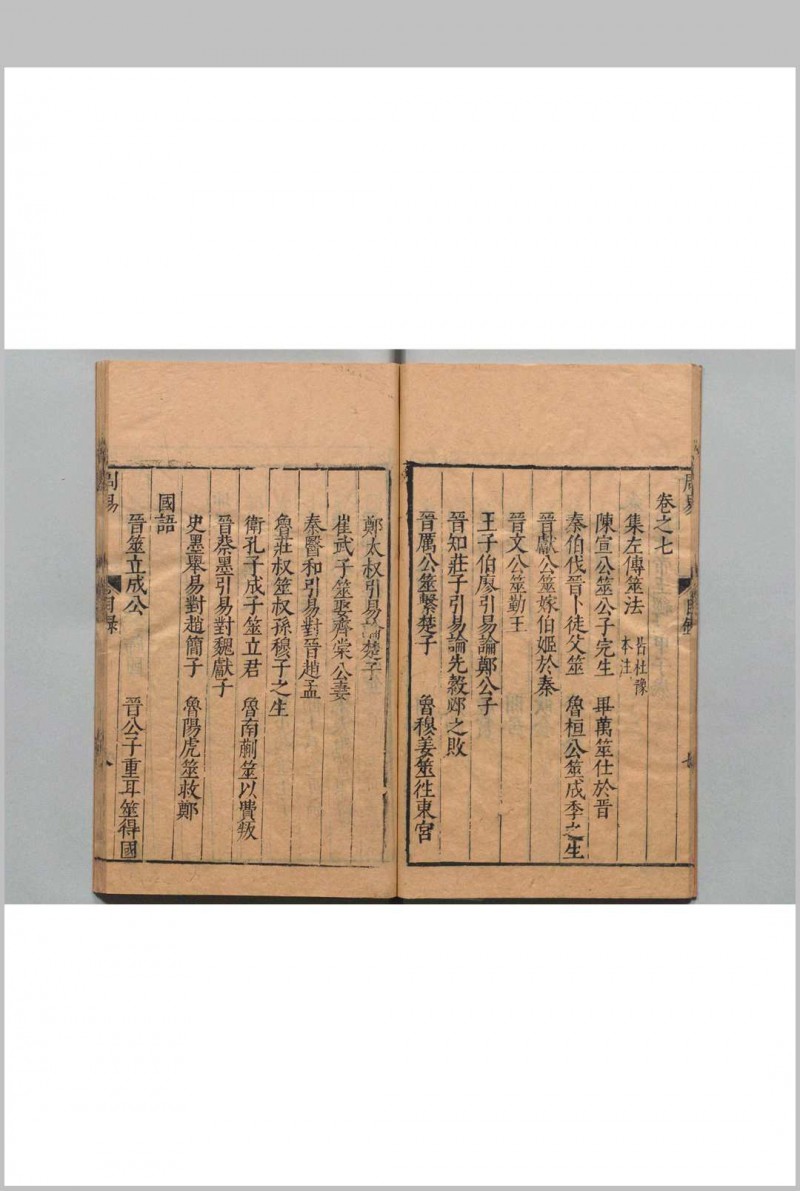 周易
目錄
卷之七
集左傳筮法 皆杜豫本注
陳宣公筮公子完生 畢萬筮仕於晉
秦伯伐晉卜徒父筮 魯桓公筮成季之生
晉獻公筮嫁伯姬於秦
晉文公筮勤王
王子伯廖引易論鄭公子
晉知莊子引易論先縠邲之敗
晉厲公筮擊楚子 魯穆姜筮徃東宮
鄭太叔引易論楚子
崔武子筮娶齊棠公妻
秦醫和引易對晉趙孟
魯莊叔筮叔孫穆子之生
衛孔子成子筮立君 魯南蒯筮以費叛
晉蔡墨引易對魏獻子
史墨舉易對趙簡子 魯陽虎筮救鄭
國語
晉筮立成公 晉公子重耳筮得國
周易
目錄
八